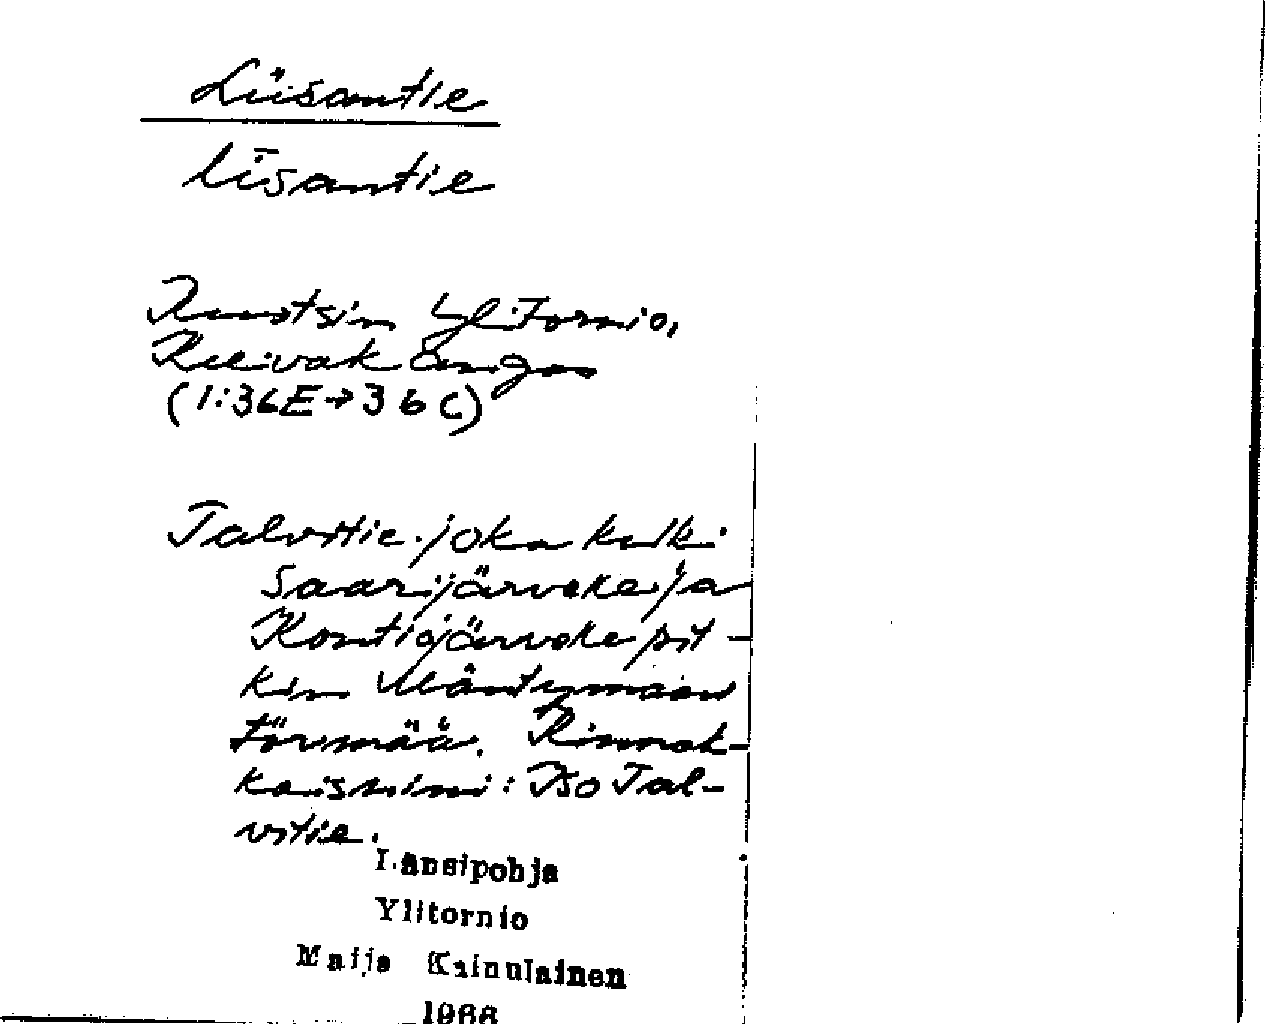 Liisantie
līsantie
Ruotsin Ylitornio,
(1:36E→36C)
Talvitie joka kulki
Saarijärveke ja
Kontiojärveke pit-
kin Mäntymaan
törmää. Rinnak-
kaisnimi: Iso Tal-
vitie.
Länsipohja
Ylitornio
Maija Kainulainen
1966